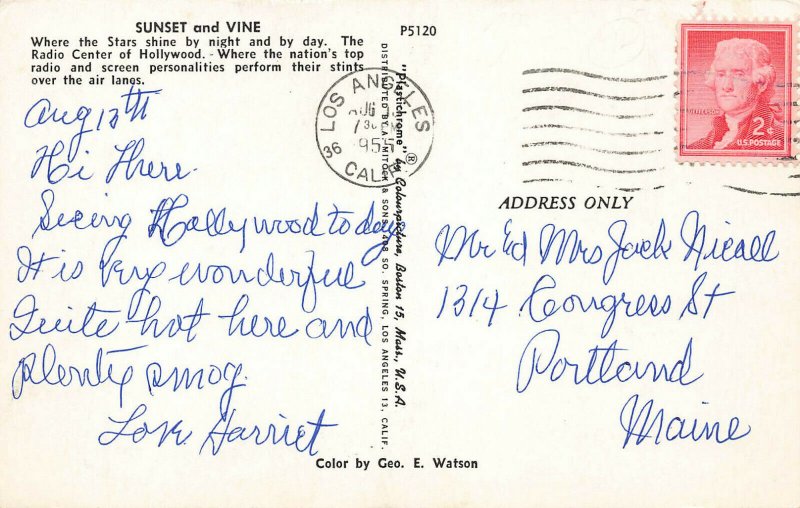 SUNSET and VINE
P5120
Where the Stars shine by night and by day. The
Radio Center of Hollywood. Where the nation's top
radio and screen personalities perform their stints
over the air lanes.
Aug 13th
Hi There
Seeing Hollywood today
It is very wonderful
Quite hot here and
plenty smog.
Love Harriet
DISTRIBUTED BY MITOCK & SONS, SO. SPRING, LOS ANGELES 13, CALIF.
"Plastichrome" ® by Colourpicture, Boston 15, Mass., U.S.A.
Color by Geo. E. Watson
LOS ANGELES
36
AUG
730
1955
CALIF.
JEFFERSON
2¢
U.S. POSTAGE
ADDRESS ONLY
Mr Ed Mrs Jack Nicall
1314 Congress St
Portland
Maine